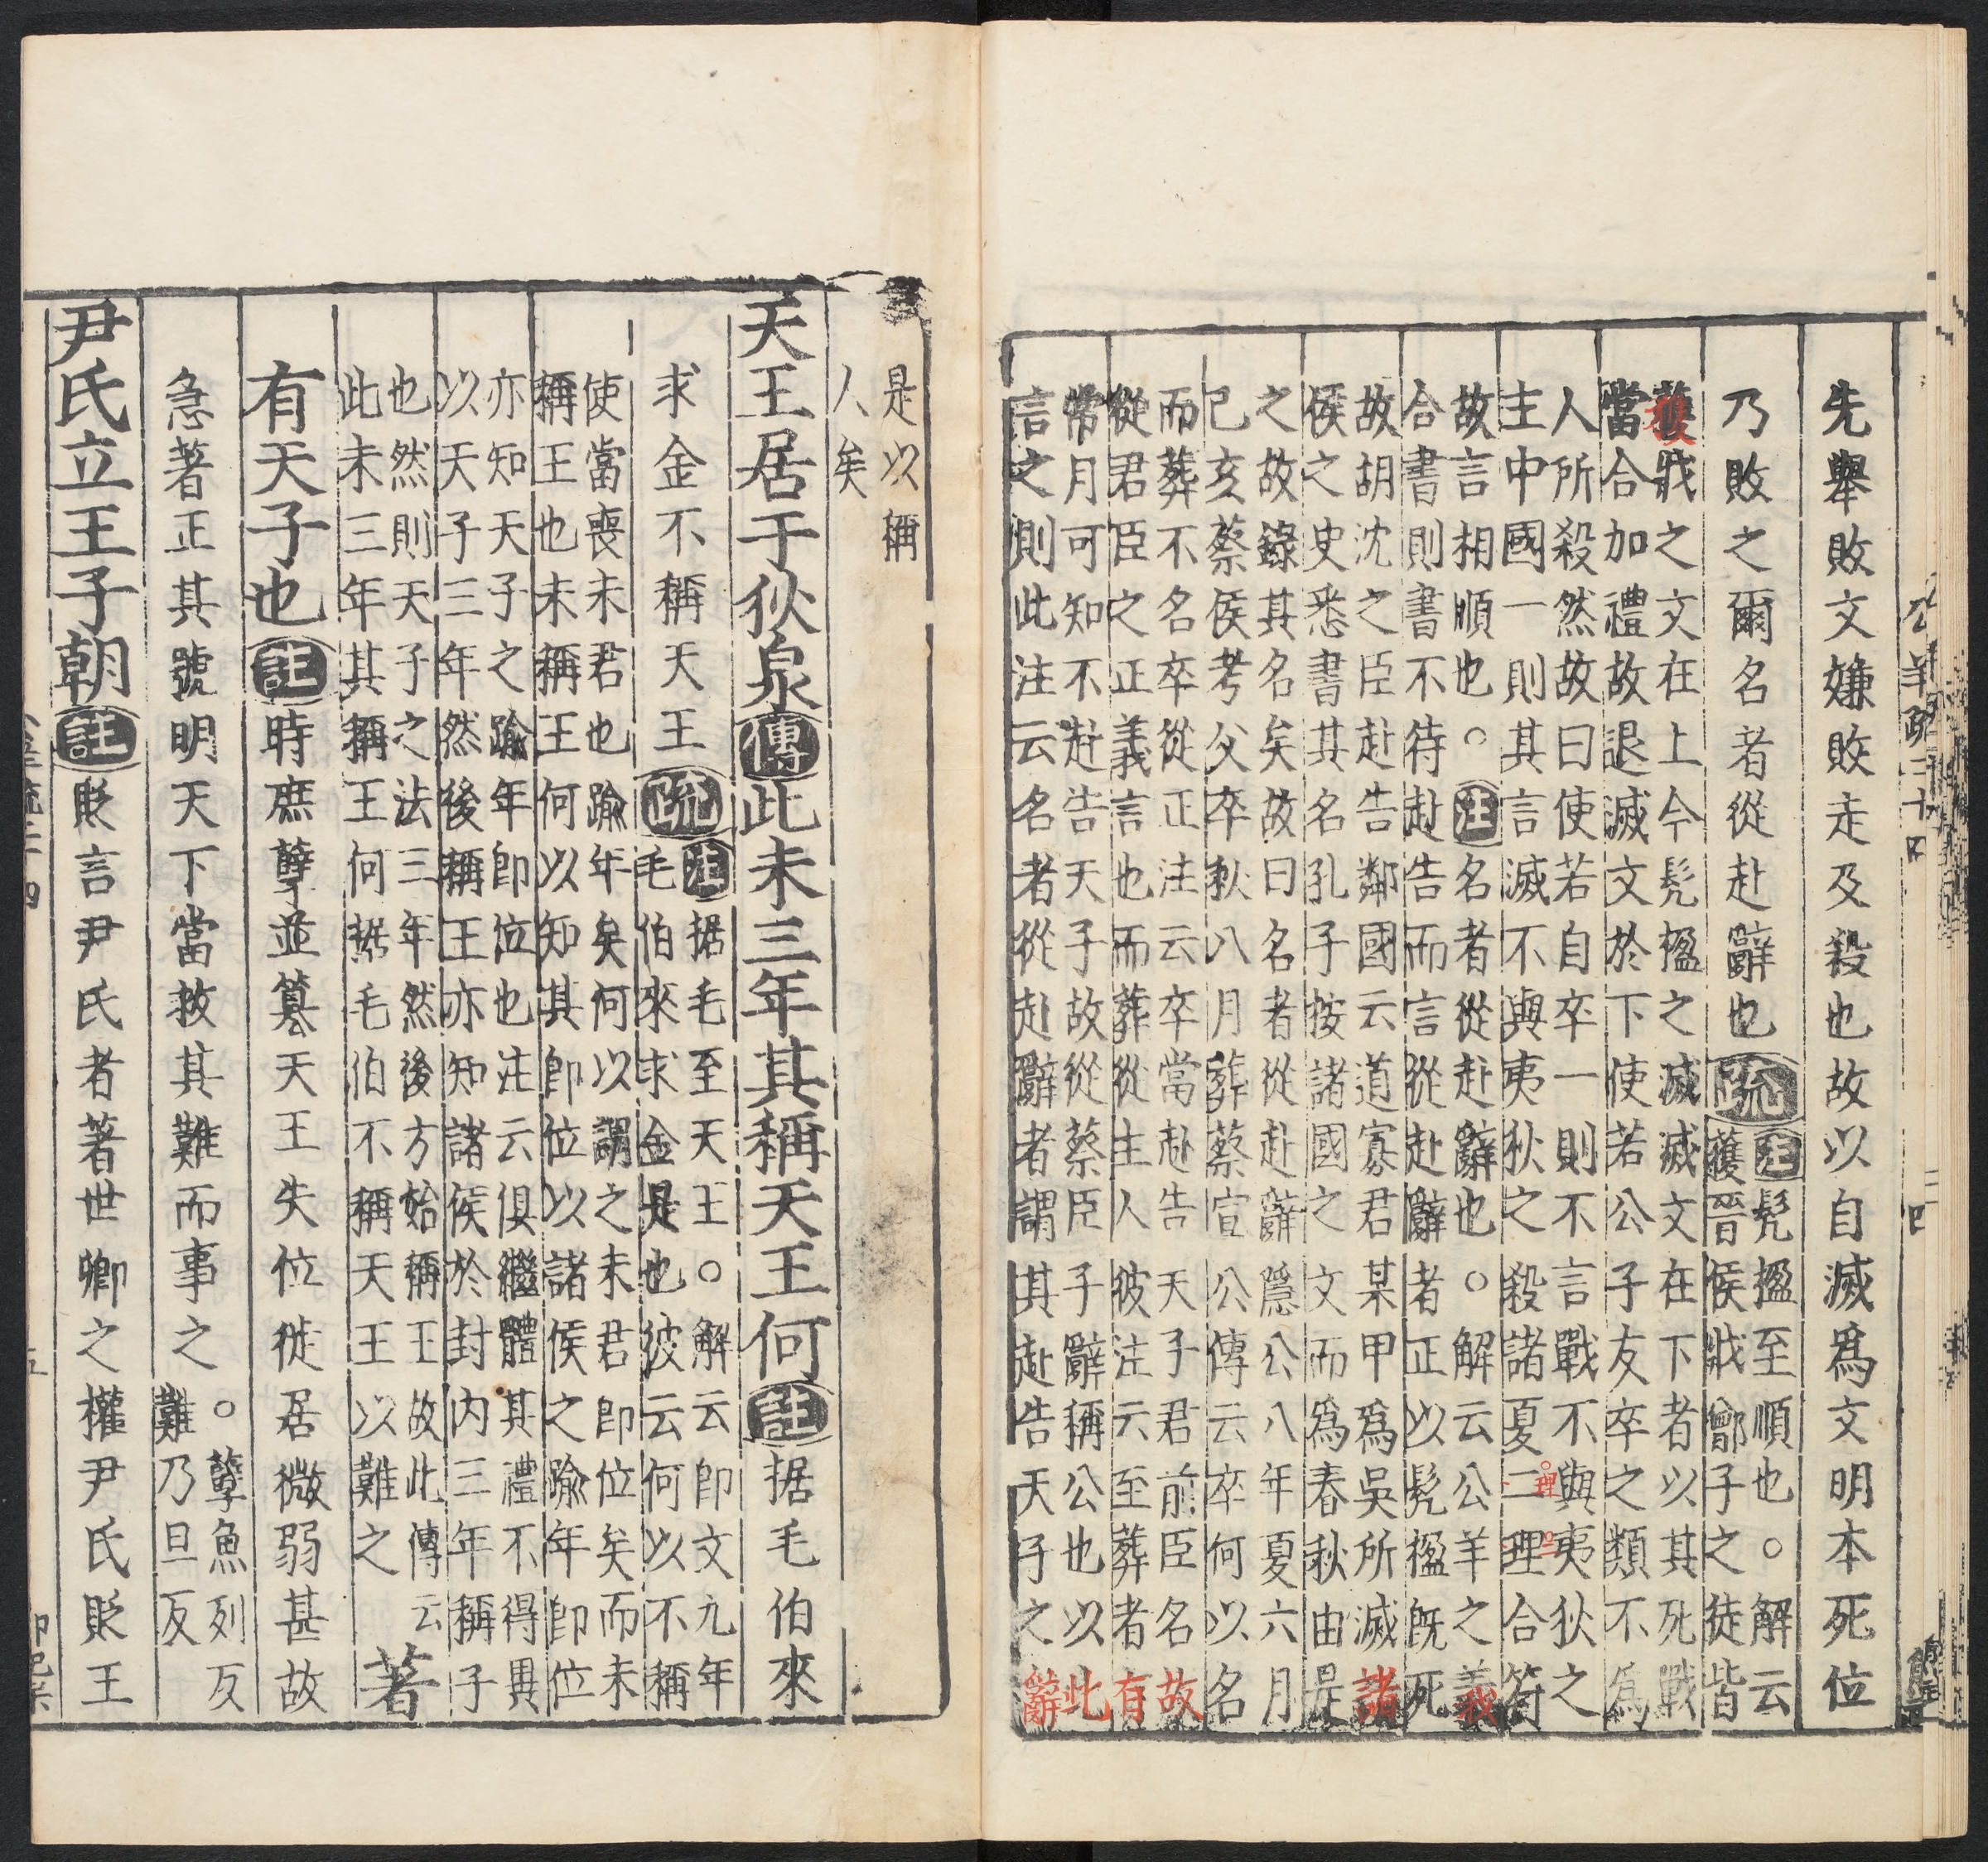 先舉敗文嫌敗走及殺也故以自滅爲文明本死位
乃敗之爾名者從赴辭也疏注髡楹至順也○解云
獲晉侯戕鄫子之徒皆
獲戕之文在上今髡楹之滅滅文在下者以其死戰
當合加禮故退滅文於下使若公子友卒之類不爲
人所殺然故曰使若自卒一則不言戰不與夷狄之
主中國一則其言滅不與夷狄之殺諸夏二理合符
故言相順也○注名者從赴辭也○解云公羊之義
合書則書不待赴告而言從赴辭者正以髡楹既死
故胡沈之臣赴告鄰國云道寡君某甲爲吳所滅諸
侯之史悉書其名孔子按諸國之文而爲春秋由是
之故錄其名矣故曰名者從赴辭隱公八年夏六月
己亥蔡侯考父卒秋八月葬蔡宣公傳云卒何以名
而葬不名卒從正注云卒當赴告天子君前臣名故
從君臣之正義言也而葬從生人彼注云至葬者有
常月可知不赴告天子故從蔡臣子辭稱公也以此
言之則此注云名者從赴辭者謂其赴告天子之辭
公羊疏二十四
二四
是以稱
人矣
天王居于狄泉傳此未三年其稱天王何註据毛伯來
求金不稱天王疏注据毛至天王○解云卽文九年
毛伯來求金是也彼云何以不稱
使當喪未君也踰年矣何以謂之未君卽位矣而未
稱王也未稱王何以知其卽位以諸侯之踰年卽位
亦知天子之踰年卽位也注云俱繼體其禮不得異
以天子三年然後稱王亦知諸侯於封內三年稱子
也然則天子之法三年然後方始稱王故此傳云
此未三年其稱王何据毛伯不稱天王以難之
著
有天子也註時庶孽並簒天王失位徙居微弱甚故
急著正其號明天下當救其難而事之○孽魚列反
難乃旦反
尹氏立王子朝註貶言尹氏者著世卿之權尹氏貶王